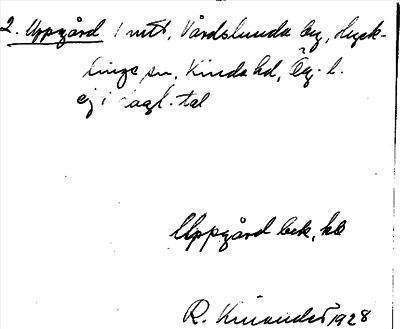 2. Uppgård 1 mtl, Vårdslunda by, Hyck-
linge sn, Kinda hd, Ög. l.
ej i dagl. tal
Uppgård bek, kb
R. Kinander 1928